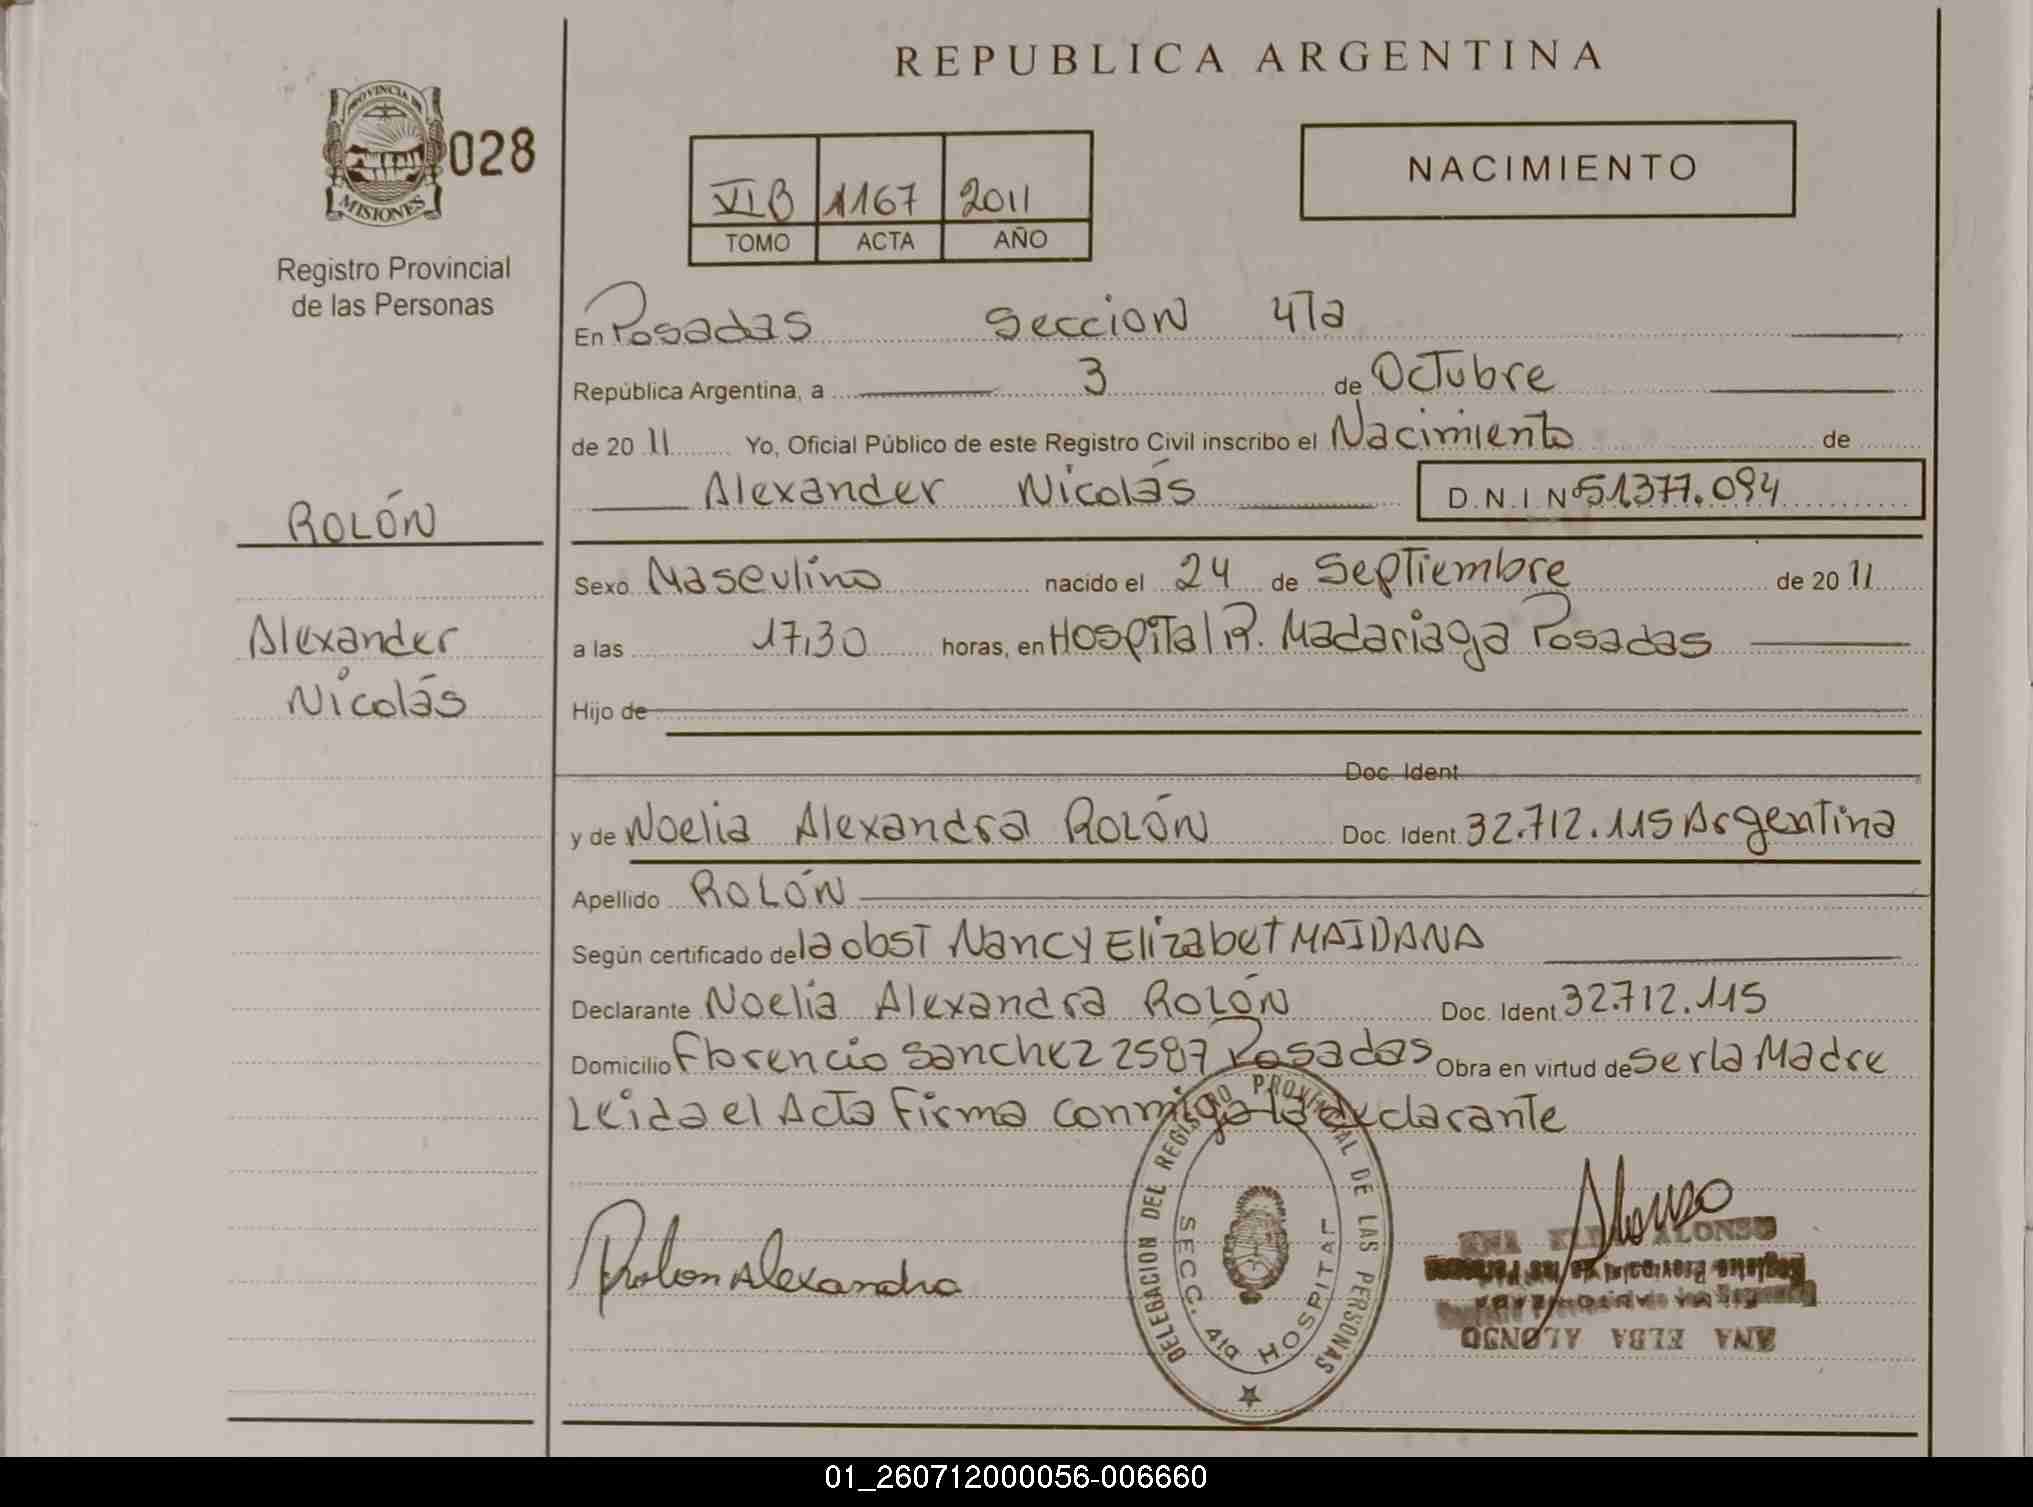 REPUBLICA ARGENTINA
PROVINCIA DE
MISIONES
028
Registro Provincial
de las Personas
VI B 1167 2011
TOMO ACTA AÑO
NACIMIENTO
En Posadas Seccion 4ta
República Argentina, a 3 de Octubre
de 20 11 Yo, Oficial Público de este Registro Civil inscribo el Nacimiento de
Alexander Nicolás D.N.I Nº 51.377.094
ROLÓN
Alexander
Nicolás
Sexo Masculino nacido el 24 de Septiembre de 20 11
a las 17,30 horas, en Hospital R. Madariaga Posadas
Hijo de
Doc. Ident
y de Noelia Alexandra ROLÓN Doc. Ident. 32.712.115 Argentina
Apellido ROLÓN
Según certificado de la obst Nancy Elizabet MAIDANA
Declarante Noelia Alexandra ROLÓN Doc. Ident. 32.712.115
Domicilio Florencio Sanchez 2587 Posadas Obra en virtud de Ser la Madre
Leida el Acta Firma conmigo la declarante
Rolon Alexandra
DELEGACION DEL REGISTRO PROVINCIAL DE LAS PERSONAS
SECC. 4ta HOSPITAL
Alonso
ANA ELBA ALONSO
Registro Provincial de las Personas
ANA ELBA ALONSO
01_260712000056-006660